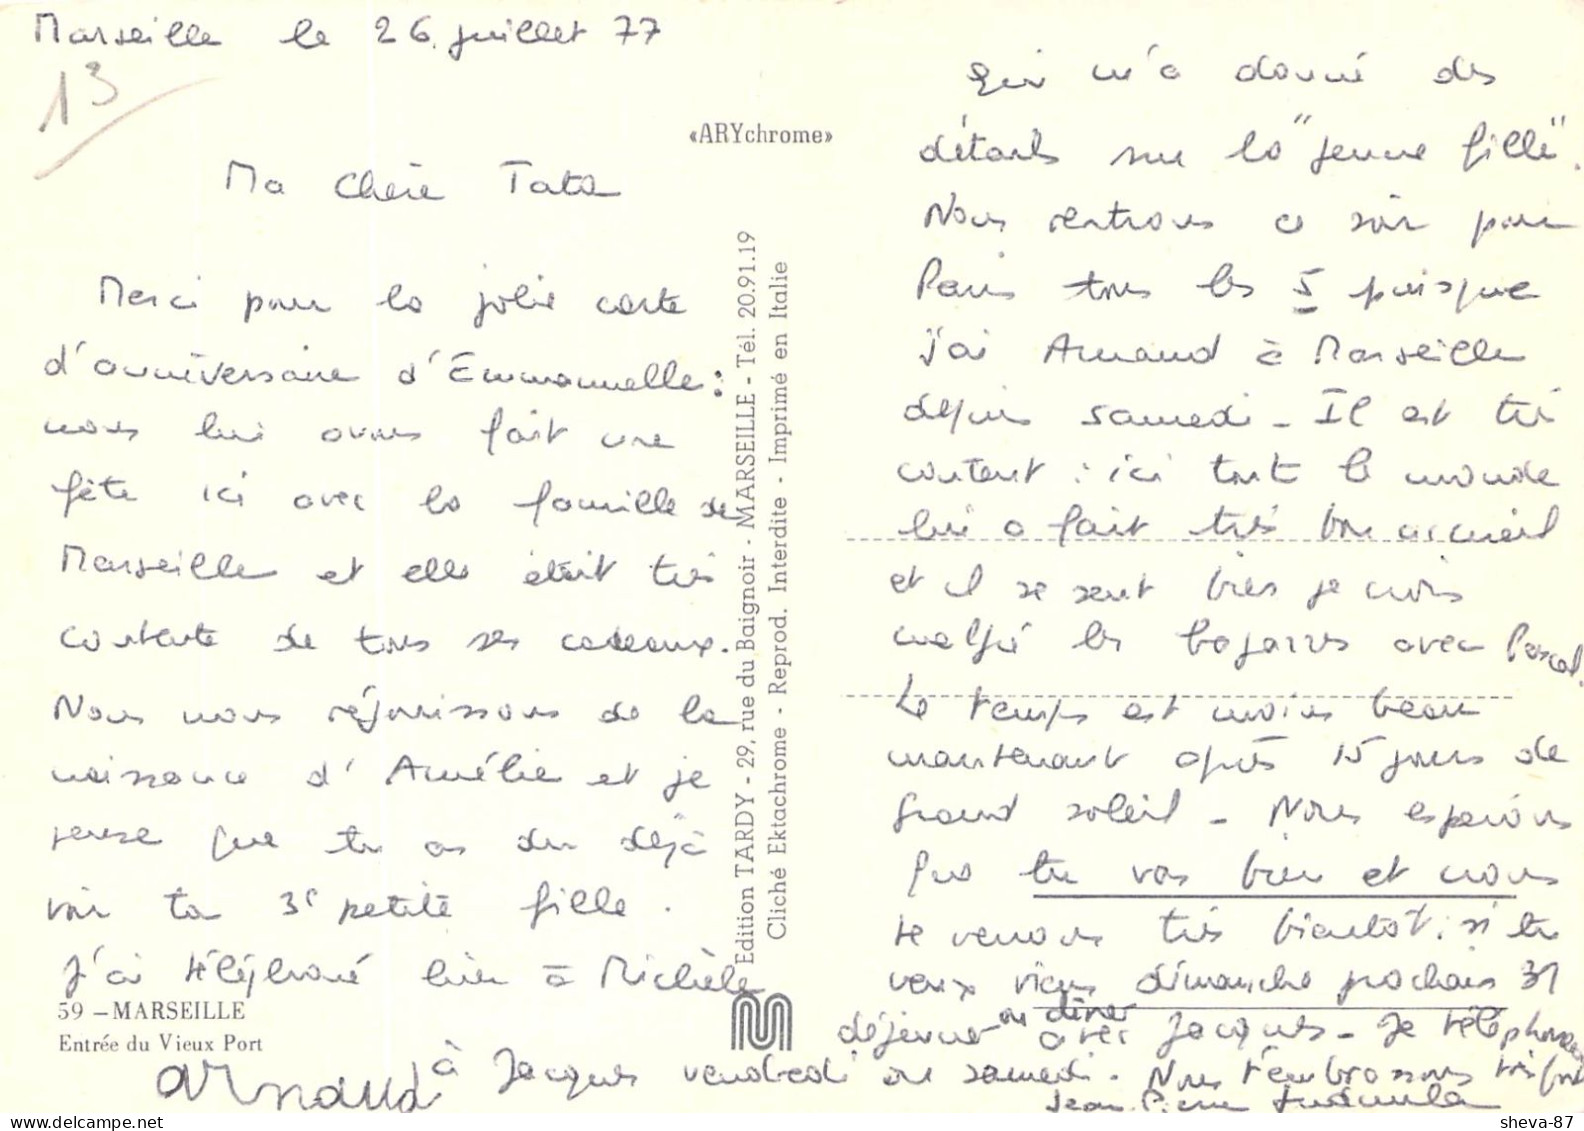 Marseille le 26 juillet 77
13
Ma Chère Tata
Merci pour la jolie carte
d'anniversaire d'Emmanuelle :
nous lui avons fait une
fête ici avec la famille de
Marseille et elle était très
contente de tous ses cadeaux.
Nous nous réjouissons de la
naissance d'Amélie et je
pense que tu as du déjà
voir ta 3e petite fille.
J'ai téléphoné hier à Michèle
59 - MARSEILLE
Entrée du Vieux Port
Arnaud
«ARYchrome»
Edition TARDY - 29, rue du Baignoir - MARSEILLE - Tél. 20.91.19
Cliché Ektachrome - Reprod. Interdite - Imprimé en Italie
qui m'a donné des
détails sur la "jeune fille".
Nous rentrons ce soir pour
Paris tous les 5 puisque
j'ai Arnaud à Marseille
depuis samedi - Il est très
content : ici tout le monde
lui a fait très bon accueil
et il se sent bien je crois
malgré les bagarres avec Pascal.
Le temps est moins beau
maintenant après 15 jours de
grand soleil - Nous espérons
que tu vas bien et nous
te verrons très bientôt : si tu
veux viens dimanche prochain 31
déjeuner ou dîner avec Jacques - Je téléphonerai
à Jacques vendredi ou samedi. Nous t'embrassons très fort
Jean Pierre
sheva-87